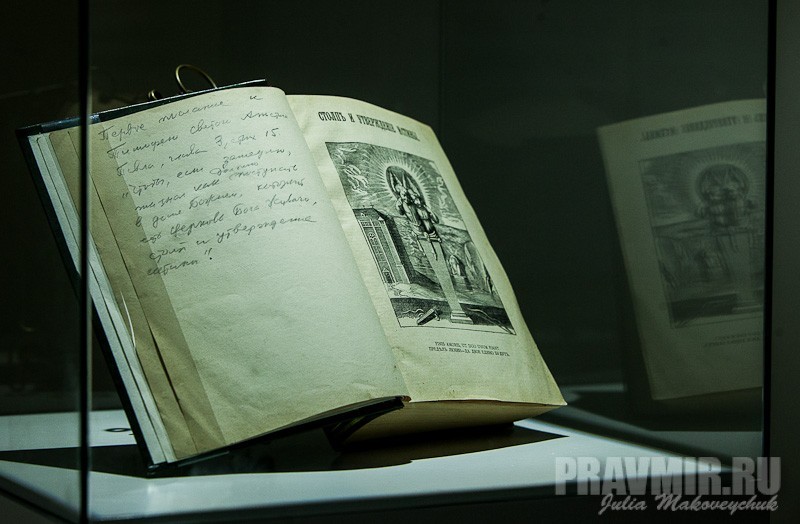 Первое послание к
Тимофею святого Апостола
Павла, глава 3, стих 15
"Чтобы, если замедлю,
ты знал как должно поступать
в доме Божием, который
есть Церковь Бога Живаго,
столп и утверждение
истины".
СТОЛПЪ И УТВЕРЖДЕНІЕ ИСТИНЫ
PRAVMIR.RU
Julia Makoveychuk